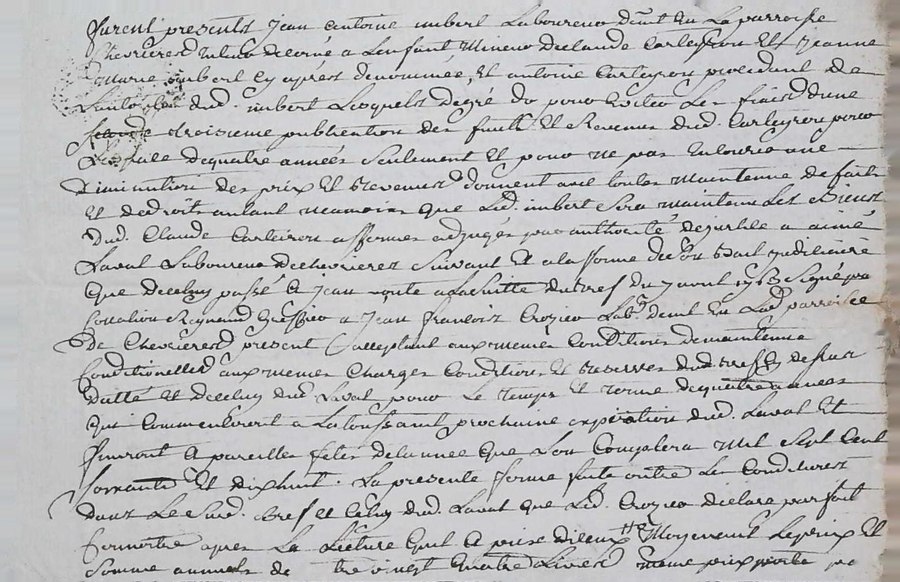 furent presents Jean antoine imbert Laboureur demt en La parroisse
chevrieres tuteur decerné a Lenfant Mineur de claude Carteyron Et Jeanne
marie imbert cy après denommée, Et antoine Carteyron procedant de
Lautorité dud. imbert Lesquels degré pour Eviter Les fraix dune
troisieme publication des fruits Et Revenus dud. Carteyron pour
de quatre années seulement Et pour ne pas Encourir une
Diminution des prix Et Revenus donnent avec toutes maintenue de fait
Et de droit autant neamoins que Led. imbert sera maintenu Les Biens
dud. Claude Carteiron affermés adjugés par authorité de justice a aimé
Laval Laboureur de chevrieres Suivant Et a la forme de son Bail judiciaire
que de celuy passé a Jean a La suitte du Bref du 7 avril 1763 signé par
Reynaud Greffier a Jean francois Crozier Labr demt En Lad. parroisse
De Chevrieres present Et acceptant aux memes Conditions de maintenue
Conditionelles aux memes Charges Conditions Et reserves dud. Bref de sur
datté Et de celuy dud. Laval pour Le temps Et terme de quatre années
qui Commenceront a La toussaint prochaine expiration dud. Laval Et
finiront a pareille fete de Lannée que Lon Comptera mil sept Cent
soixante Et dix huit. La presente ferme faite outre Les Conditions
dans Le susd. Bref Et Celuy dud. Laval que Led. Crozier declare parfait
apres La Lecture quil a prise diceux Moyenant Le prix Et
somme annuelle de quatre Livres meme prix porté par